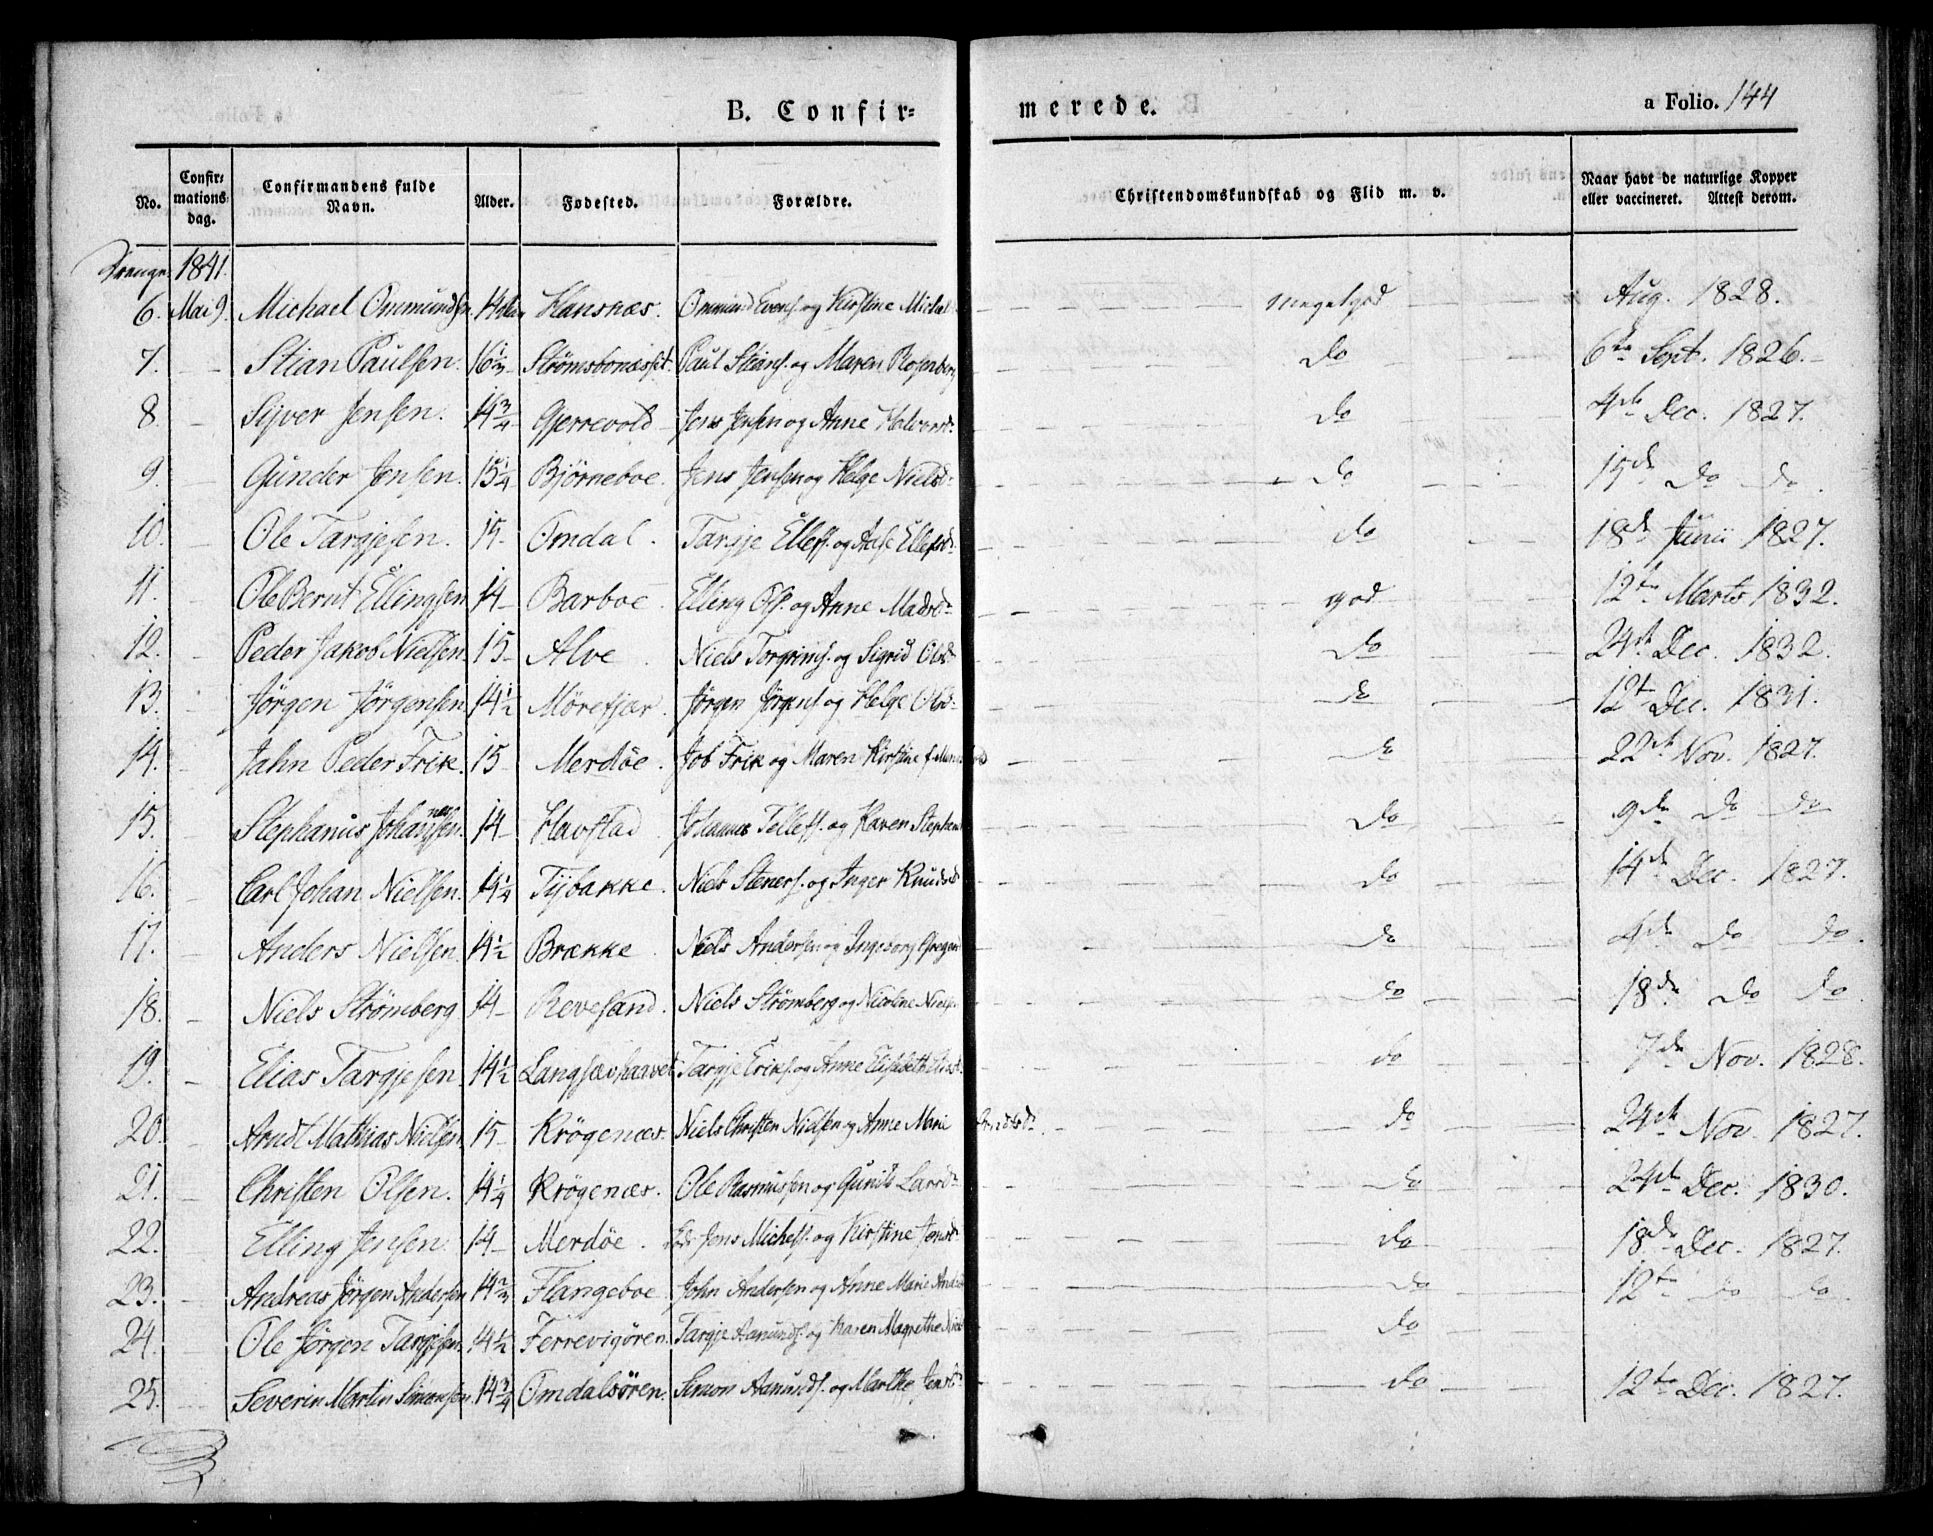 B. Confir= merede. a Folio. 144
No. Confir= mations= dag. Confirmandens fulde Navn. Alder. Fødested. Forældre. Christendomskundskab og Flid m. v. Naar havt de naturlige Kopper eller vaccineret. Attest derom.
Drenge 1841.
6. Mai 9. Michael Ommundsen. 14 Hansnæs. Ommund Evens. og Kirstine Michels meget god Aug. 1828.
7. Stian Paulsen. 16 1/3 Strømsbonæsset. Paul Stians. og Maren Rosenberg do 6te Sept. 1826.
8. Syver Jensen. 14 3/4 Gjerrevold Jens Jensen og Anne Halvorsd. do 4de Dec. 1827.
9. Gunder Jensen. 15 1/4 Bjørneboe. Jens Jensen og Helge Nielsd. do 15de do do.
10. Ole Targjesen. 15 Omdal. Targje Ellefs. og Aase Ellefsd. do 18de Junii 1827.
11. Ole Bernt Ellingsen 14 Barboe. Elling Ols. og Anne Madsd. god 12te Marts 1832.
12. Peder Jakob Nielsen. 15 Alve. Niels Torgrims. og Sigrid Olsd. do 24de Dec. 1832.
13. Jørgen Jørgensen 14 1/2 Mørefjær. Jørgen Jørgens. og Helge Olsd. do 12te Dec. 1831.
14. Jahn Peder Frik. 15 Merdöe. Job Frik og Maren Kirstine do 22de Nov. 1827.
15. Stephanus Johannessen. 14 Havstad Johannes Tellefs. og Karen Stephansd do 9de do do
16. Carl Johan Nielsen. 14 1/4 Tybakke. Niels Steners. og Inger Knudsd do 14de Dec. 1827.
17. Anders Nielsen. 14 1/2 Brække. Niels Andersen og Ingeborg Gregersd do 4de do do.
18. Niels Strømberg 14 Revesand. Niels Strømberg og Nicoline Niels do 18de do do.
19. Elias Targjesen. 14 1/2 Langsævhaavet Targje Eriks. og Anne Elisabeth Eliasd. do 7de Nov. 1828.
20. Arndt Mathias Nielsen 15 Krögenæs. Niels Christen Nielsen og Anne Marie Arndtsd. do 24de Nov. 1827.
21. Christen Olsen. 14 1/4 Krögenæs. Ole Rasmussen og Gunild Larsd. do 24de Dec. 1830.
22. Elling Jensen 14 Merdöe. Jens Michels. og Kirstine Jensd. do 18de Dec. 1827.
23. Andreas Jørgen Andersen 14 2/3 Flangeboe. John Andersen og Anne Marie Andersd do 12te do do.
24. Ole Jørgen Targjesen 14 1/2 Færrevigören. Targje Aanunds. og Karen Magrethe Nielsd do
25. Severin Martin Simonsen. 14 3/4 Omdalsören. Simon Aanunds. og Marthe Jensd. do 12te Dec. 1827.